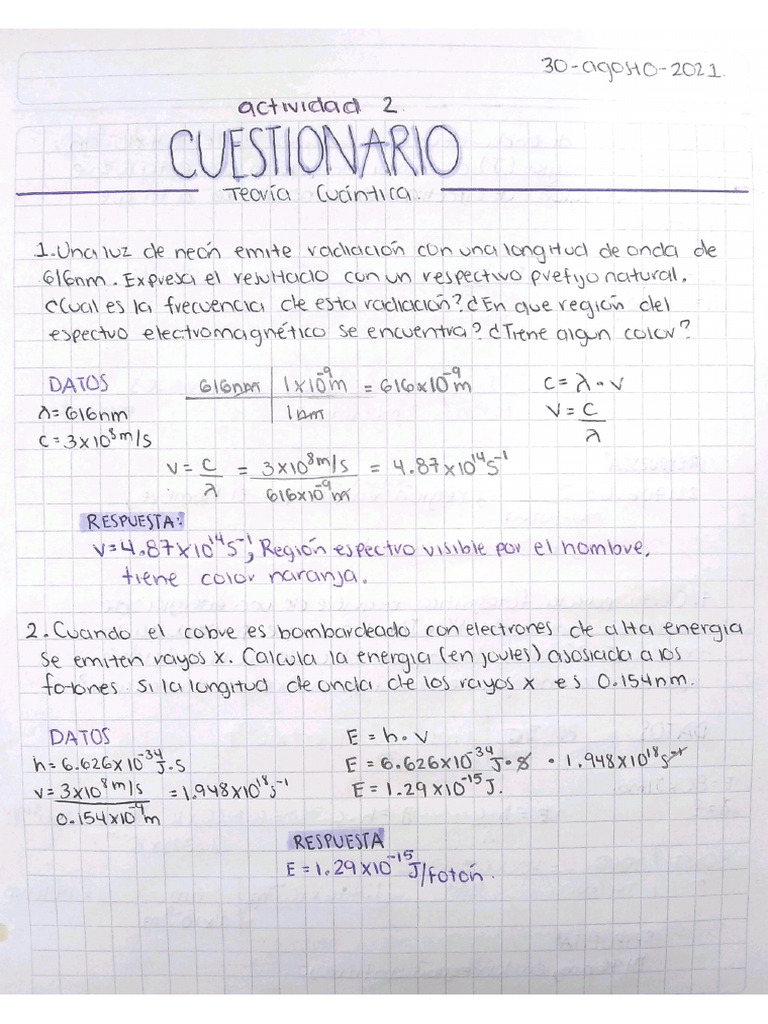 30-agosto-2021.
actividad 2.
CUESTIONARIO
Teoría Cuántica.
1. Una luz de neón emite radiación con una longitud de onda de
616nm. Expresa el resultado con un respectivo prefijo natural.
¿Cual es la frecuencia de esta radiación? ¿En que región del
espectro electromagnético se encuentra? ¿Tiene algun color?
DATOS
616nm | 1x10⁻⁹m = 616x10⁻⁹m
1nm
c = λ • v
λ = 616nm
v = c/λ
c = 3x10⁸m/s
v = c/λ = 3x10⁸m/s / 616x10⁻⁹m = 4.87x10¹⁴s⁻¹
RESPUESTA:
v = 4.87x10¹⁴s⁻¹, Región espectro visible por el hombre,
tiene color naranja.
2. Cuando el cobre es bombardeado con electrones de alta energia
se emiten rayos x. Calcula la energia (en joules) asosiada a los
fotones si la longitud de onda de los rayos x es 0.154nm.
DATOS
E = h • v
h = 6.626x10⁻³⁴J.s
E = 6.626x10⁻³⁴J • s • 1.948x10¹⁸s⁻¹
v = 3x10⁸m/s / 0.154x10⁻⁹m = 1.948x10¹⁸s⁻¹
E = 1.29x10⁻¹⁵J.
RESPUESTA
E = 1.29x10⁻¹⁵J/fotón.